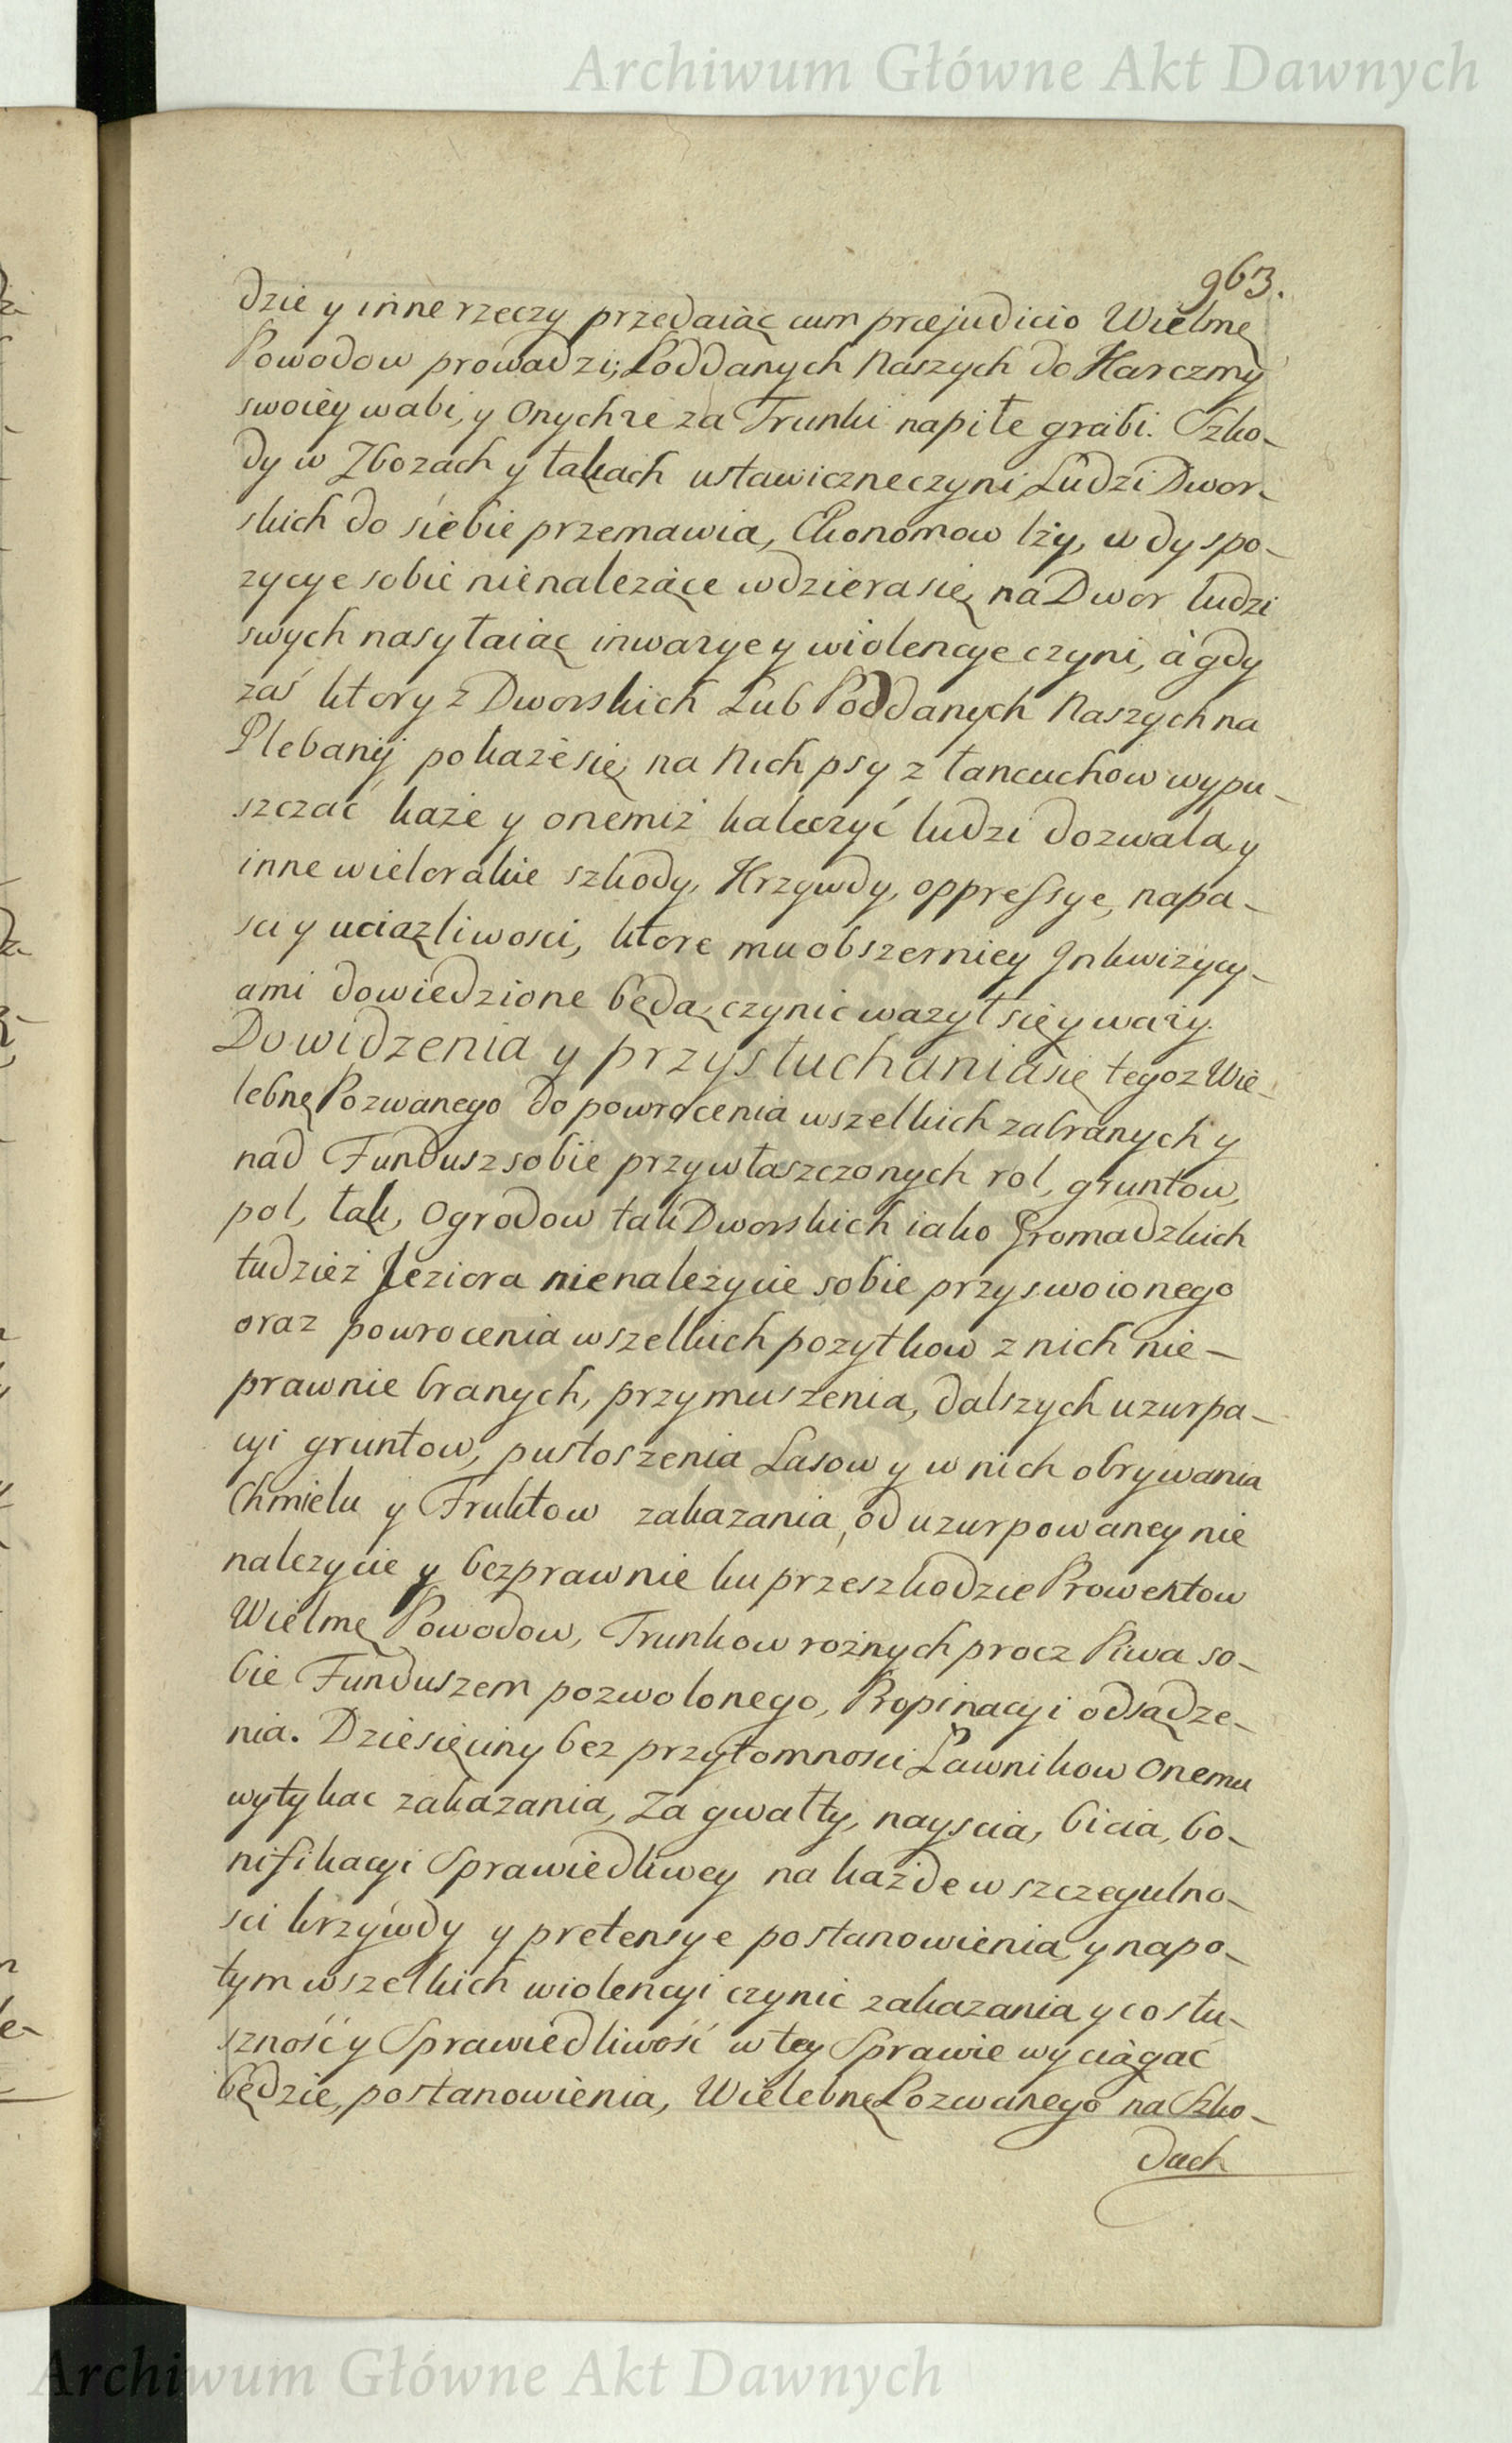 Archiwum Główne Akt Dawnych
963.
dzie y inne rzeczy przedaiąc cum præjudicio Wielmę
Powodow prowadzi; Poddanych Naszych do Karczmy
swoiey wabi, y Onychże za Trunki napiłe grabi. Szko-
dy w Zbożach y łąkach ustawiczne czyni Ludzi Dwor-
skich do siebie przemawia, Ekonomow lży, w dyspo-
zycye sobie nienależące wdziera się, na Dwor ludzi
swych nasyłaiąc inwazye y wiolencye czyni, a gdy
zaś ktory z Dworskich Lub Poddanych Naszych na
Plebanij pokaże się, na Nich psy z łancuchow wypu-
szczać każe y onemiż kaleczyć ludzi dozwala, y
inne wielorakie szkody, Krzywdy, oppressye, napa-
sci y uciązliwosci, ktore mu obszerniey Inkwizycy-
ami dowiedzione będą, czynic ważył się y waży.
Do widzenia y przysłuchania się tegoż Wie-
lebnę Pozwanego do powrocenia wszelkich zabranych y
nad Fundusz sobie przywłaszczonych rol, gruntow,
pol, łąk, Ogrodow tak Dworskich iako Gromadzkich
tudzież Jeziora nienależycie sobie przyswoionego
oraz powrocenia wszelkich pozytkow z nich nie-
prawnie branych, przymuszenia, dalszych uzurpa-
cyi gruntow, pustoszenia Lasow y w nich obrywania
Chmielu y Fruktow zakazania, od uzurpowaney nie
nalezycie y bezprawnie ku przeszkodzie Prowentow
Wielmę Powodow, Trunkow rożnych procz Piwa so-
bie Funduszem pozwolonego, Propinacyi odsądze-
nia. Dziesięciny bez przytomnosci Ławnikow Onemu
wytykac zakazania, Za gwałty, nayscia, bicia, bo-
nifikacyi Sprawiedliwey na każde w szczegulno-
sci krzywdy y pretensye postanowienia, y napo-
tym wszelkich wiolencyi czynic zakazania y co słu-
szność y Sprawiedliwość w tey Sprawie wyciągać
będzie, postanowienia, Wielebnę Pozwanego na Szko-
dach
Archiwum Główne Akt Dawnych